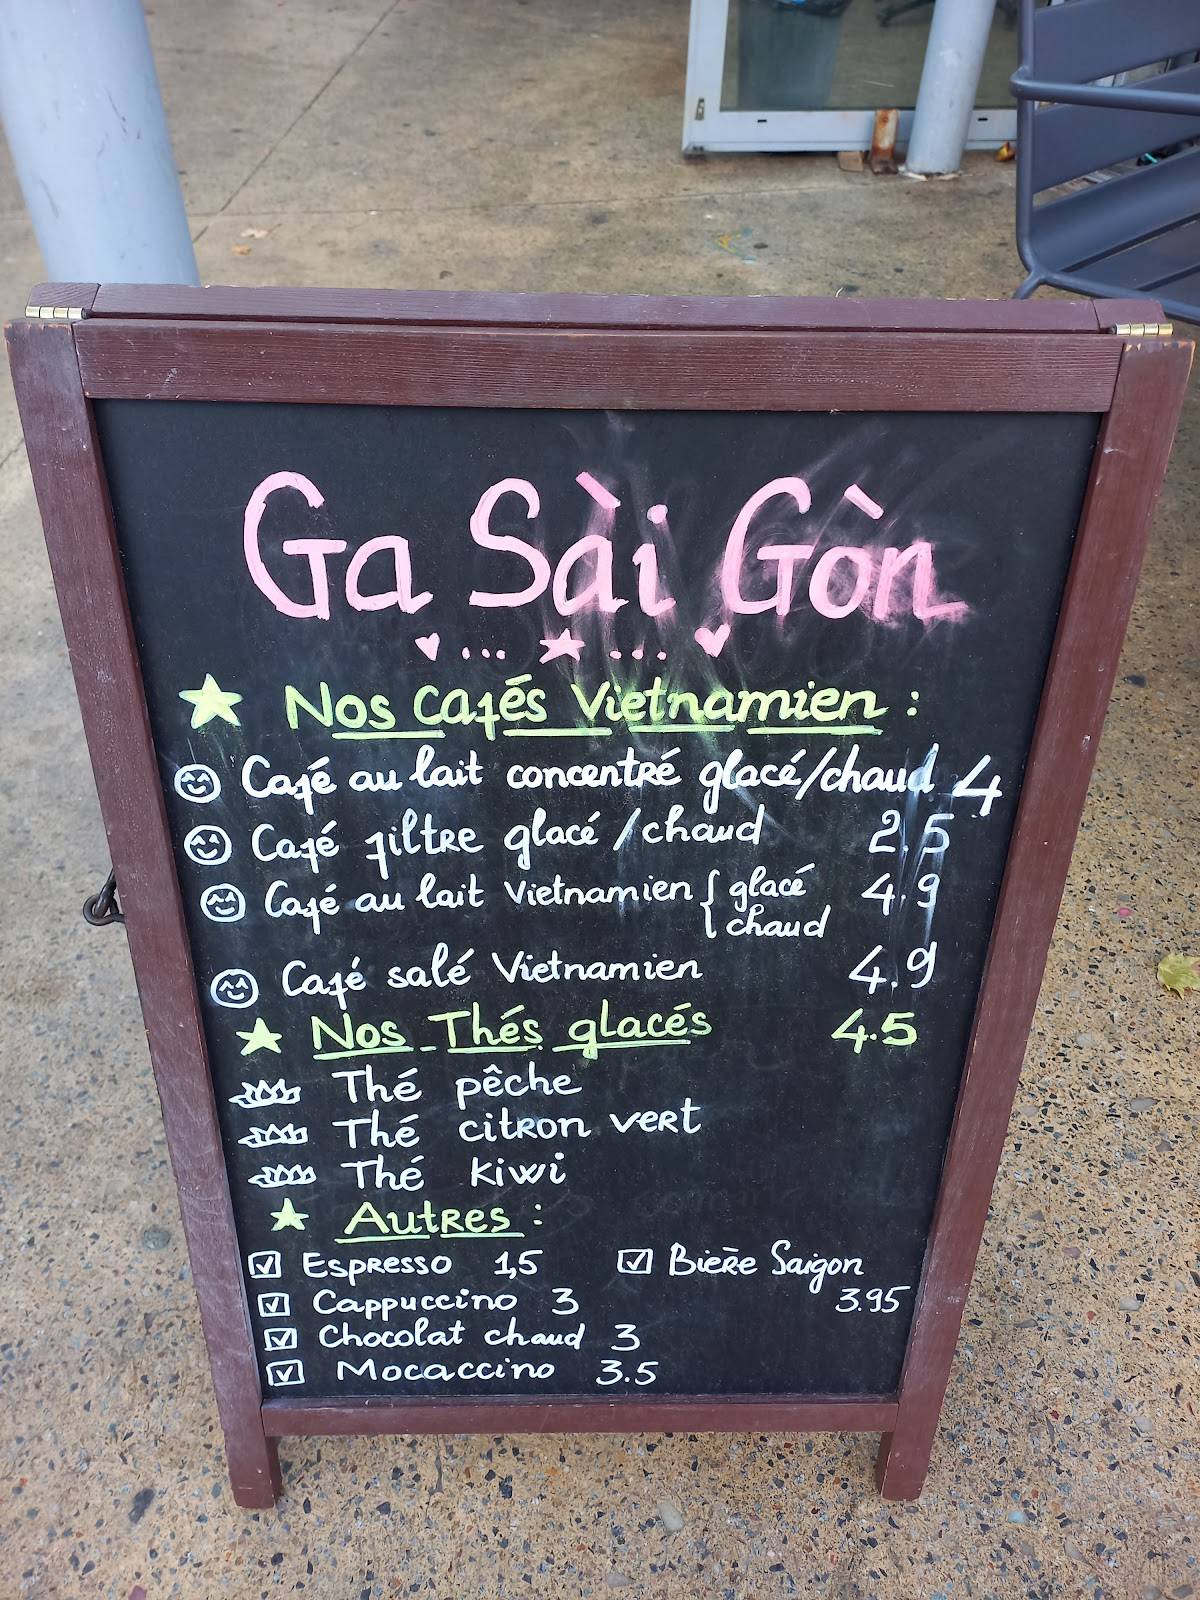 Ga Sài Gòn
Nos Cafés Vietnamien :
Café au lait concentré glacé/chaud 4
Café filtre glacé /chaud 2.5
Café au lait Vietnamien { glacé 4.9
chaud
Café salé Vietnamien 4.9
Nos Thés glacés 4.5
Thé pêche
Thé citron vert
Thé kiwi
Autres :
Espresso 1,5 Bière Saigon
Cappuccino 3 3.95
Chocolat chaud 3
Mocaccino 3.5